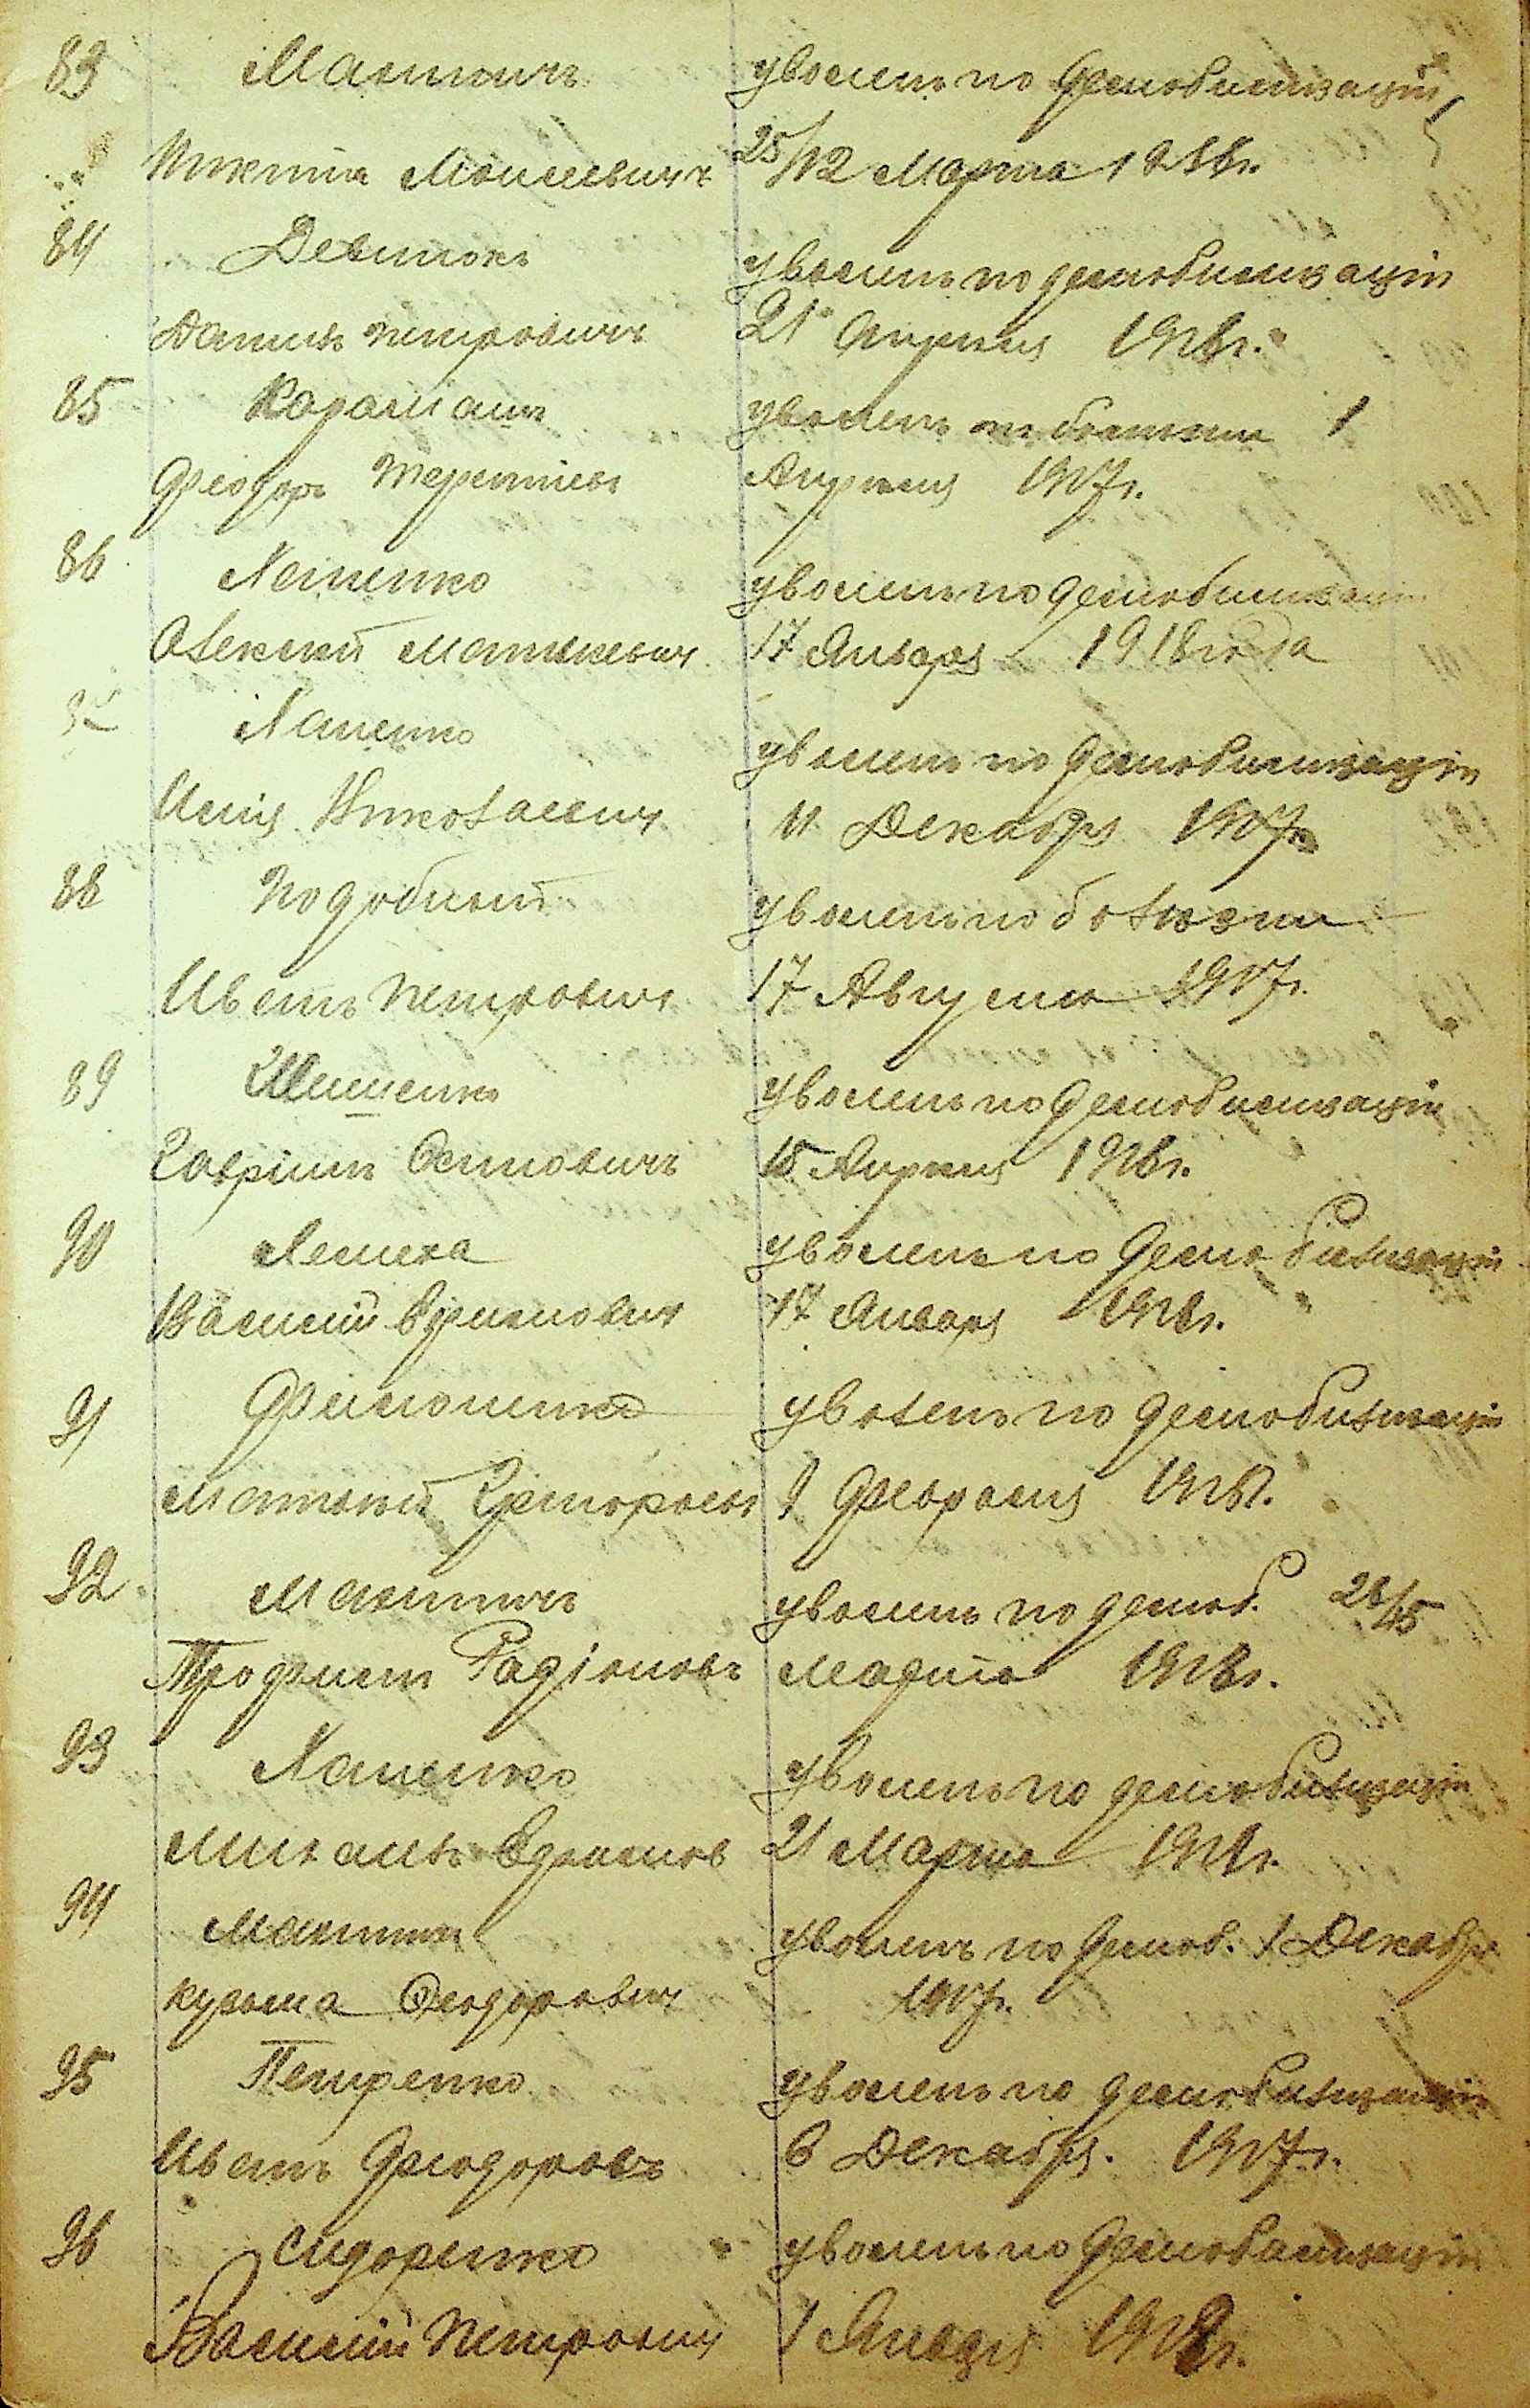 83 Махтичъ уволенъ по демобилизаціи
Никита Моисеевичъ 25/12 Марта 1918г.
84 Девтюкъ уволенъ по демобилизаціи
Данилъ Петровичъ 21 Апреля 1918г.
85 уволенъ по болезни 1
Феодоръ Терентіевъ Апреля 1917г.
86 Лапенко уволенъ по демобилизаціи
Алексей Матвеевич 17 Января 1918 года
Лапенко уволенъ по демобилизаціи
Илія Николаевич 11 Декабря 1917г.
88 Подобный уволенъ по болезни
Иванъ Петрович 17 Августа 1917г.
89 уволенъ по демобилизаціи
Гавріилъ Осиповичъ 15 Апреля 1918г.
90 Лемеха уволенъ по демобилизаціи
Василий 17 Января 1918г.
91 Филоненко уволенъ по демобилизаціи
Матвей Григорьевъ 9 Февраля 1918г.
92 Махтичъ уволенъ по демоб. 28/15
Трофимъ Радіоновъ Марта 1918г.
93 Лапенко уволенъ по демобилизаціи
Михаилъ 21 Марта 1918г.
94 Махтич уволенъ по демоб. 1 Декабря
Кузьма Феодорович 1917г.
95 Петренко уволенъ по демобилизаціи
Иванъ Феодоровъ 6 Декабря. 1917г.
96 Сидоренко уволенъ по демобилизаціи
Василий Петрович 1 Января 1918г.